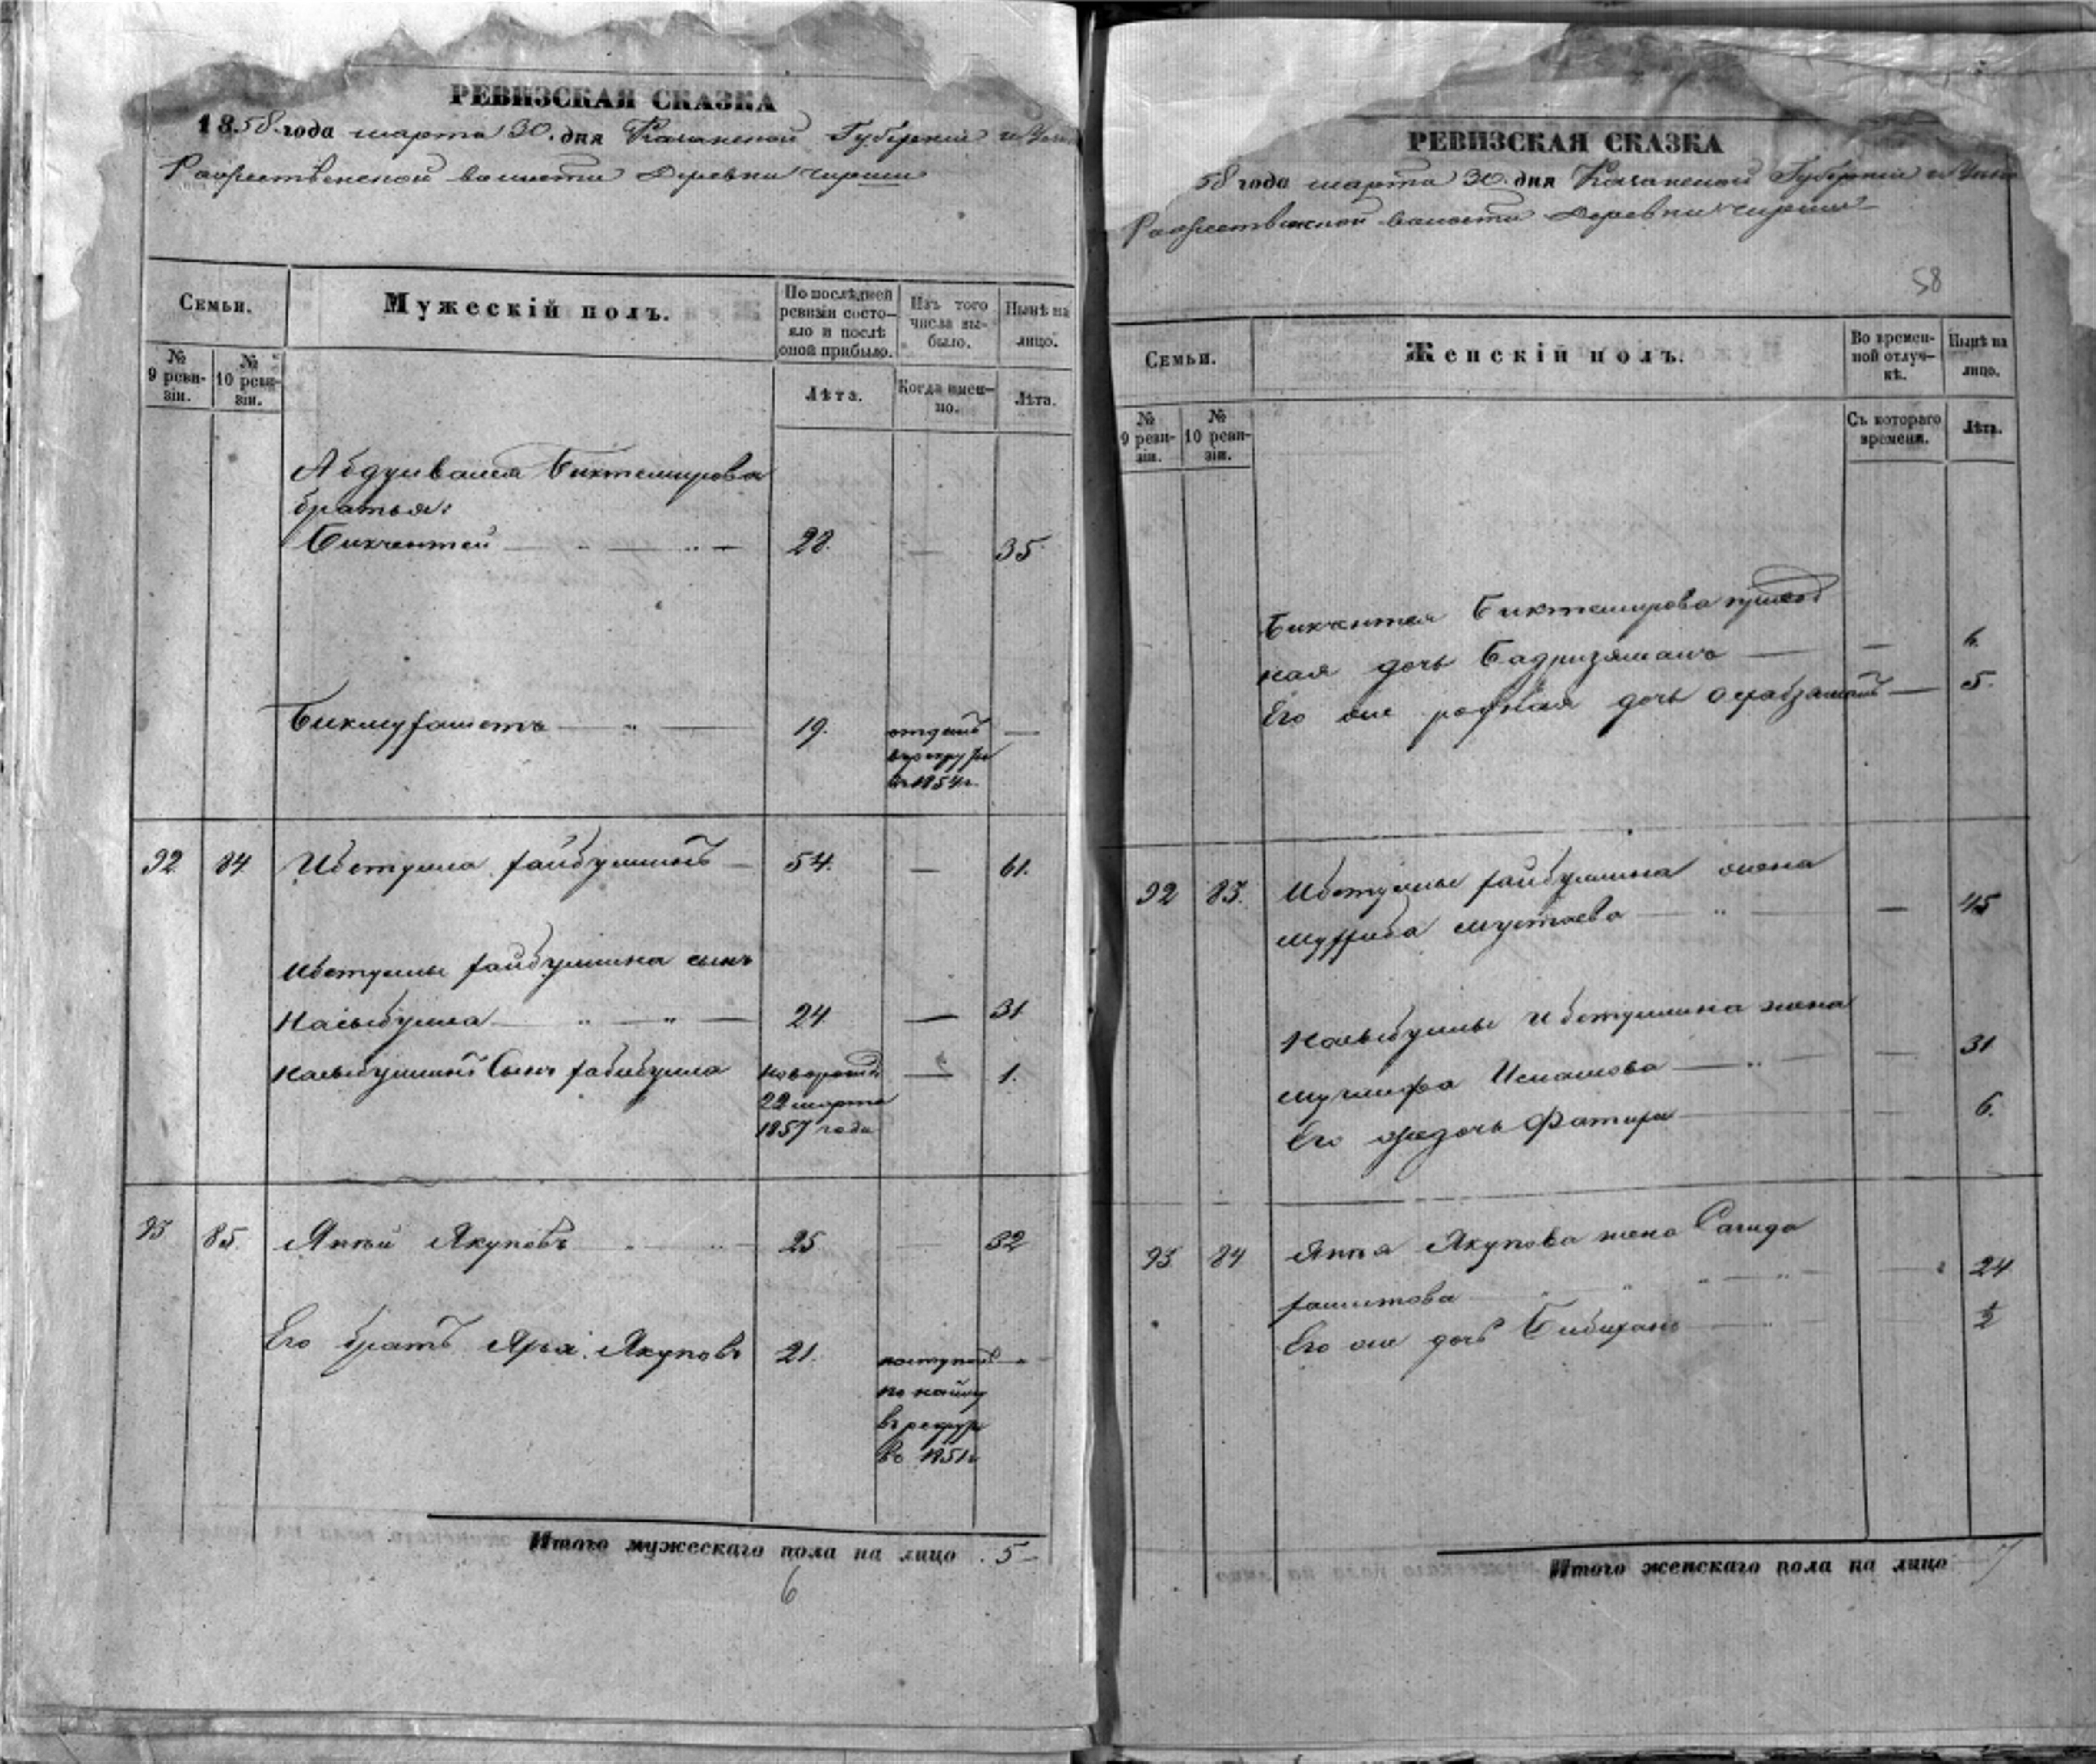 РЕВИЗСКАЯ СКАЗКА
1858 года марта 30 дня Казанской Губернии и
Рождественской волости Деревни Чирши
Семьи.
Мужескій полъ.
По послѣдней ревизіи состо-
яло и послѣ
оной прибыло.
Изъ того
числа вы-
было.
Нынѣ на
лицо.
№
9 реви-
зіи.
№
10 реви-
зіи.
Лѣта.
Когда имен-
но.
Лѣта.
Абдулвалея Биктемирова
братья:
Бикчентей 28. — 35.
Бикмухаметъ 19. отданъ —
въ рекруты
въ 1854 г.
92. 84 Ибетулла Хайбуллинъ 54. — 61.
Ибетуллы Хайбуллина сынъ
Насыбулла 24. — 31
Насыбуллинъ Сынъ Хабибулла новорожд — 1.
22 марта
1857 года
93 85. Яппей Якуповъ 25 32
Его братъ Якуповъ 21. поступилъ
по найму
въ рекруты
въ 1851 г
Итого мужескаго пола на лицо 5
6
РЕВИЗСКАЯ СКАЗКА
58 года марта 30. дня Казанской Губерніи и
Рождественской волости Деревни Чирши
58
Семьи.
Женскій полъ.
Во времен-
ной отлуч-
кѣ.
Нынѣ на
лицо.
№
9 реви-
зіи.
№
10 реви-
зіи.
Съ котораго
времени.
Лѣта.
Бикчентея Биктемирова
ная дочь Бадризямалъ — — 6.
Его же родная дочь — 5.
92 83. Ибетуллы Хайбуллина жена
Мустаева — 45
Насыбуллы Ибетуллина жена
Исмаилова — 31
Его же дочь Фатиха 6.
93. 84 Яппея Якупова жена Сагида
Хашитова 24
Его же дочь Бибижанъ 1/2
Итого женскаго пола на лицо 7